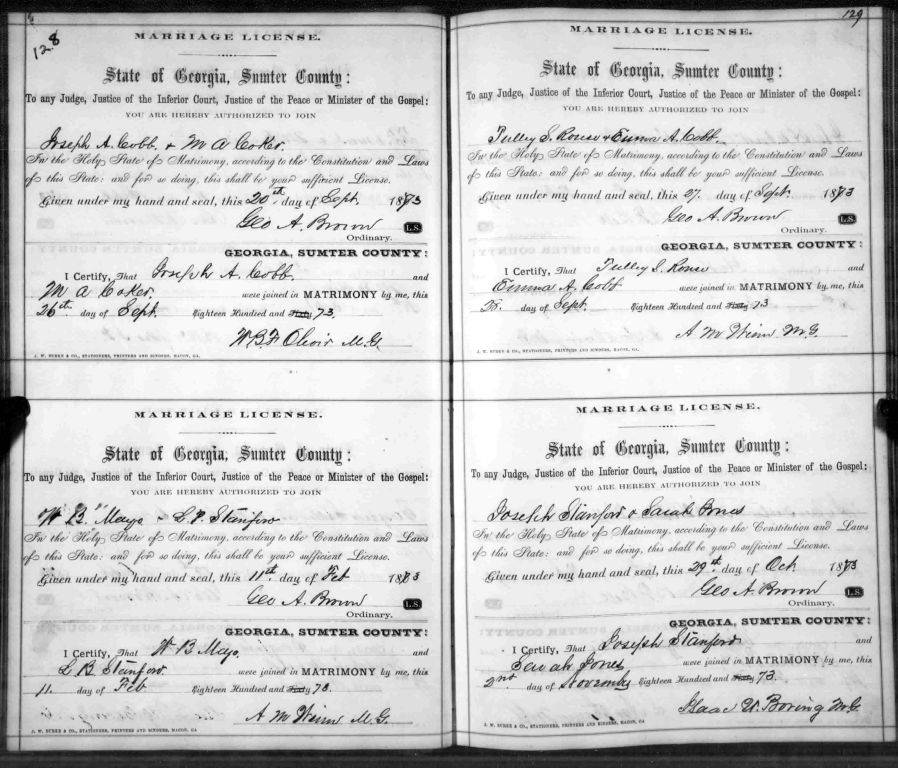 128
MARRIAGE LICENSE.
State of Georgia, Sumter County:
To any Judge, Justice of the Inferior Court, Justice of the Peace or Minister of the Gospel:
YOU ARE HEREBY AUTHORIZED TO JOIN
Joseph A. Cobb. & M A Coker.
In the Holy State of Matrimony, according to the Constitution and Laws
of this State: and for so doing, this shall be your sufficient License.
Given under my hand and seal, this 20th day of Sept. 1873
Geo A. Brown L.S.
Ordinary.
GEORGIA, SUMTER COUNTY:
I Certify, That Joseph A. Cobb. and
M A Coker. were joined in MATRIMONY by me, this
26th day of Sept. Eighteen Hundred and Sixty 73.
W.B.F. Oliver M.G.
J. W. BURKE & CO., STATIONERS, PRINTERS AND BINDERS, MACON, GA.
MARRIAGE LICENSE.
State of Georgia, Sumter County:
To any Judge, Justice of the Inferior Court, Justice of the Peace or Minister of the Gospel:
YOU ARE HEREBY AUTHORIZED TO JOIN
W "B" Mayo & L. P. Stanford
In the Holy State of Matrimony, according to the Constitution and Laws
of this State: and for so doing, this shall be your sufficient License.
Given under my hand and seal, this 11th. day of Feb 1873
Geo A. Brown L.S.
Ordinary.
GEORGIA, SUMTER COUNTY:
I Certify, That W B Mayo, and
L B Stanford. were joined in MATRIMONY by me, this
11. day of Feb Eighteen Hundred and Sixty 73.
A M Winn M.G.
J. W. BURKE & CO., STATIONERS, PRINTERS AND BINDERS, MACON, GA
129
MARRIAGE LICENSE.
State of Georgia, Sumter County:
To any Judge, Justice of the Inferior Court, Justice of the Peace or Minister of the Gospel:
YOU ARE HEREBY AUTHORIZED TO JOIN
Tulley S. Rouse & Emma A. Cobb.
In the Holy State of Matrimony, according to the Constitution and Laws
of this State: and for so doing, this shall be your sufficient License.
Given under my hand and seal, this 27. day of Sept. 1873
Geo A. Brown L.S.
Ordinary.
GEORGIA, SUMTER COUNTY:
I Certify, That Tulley S. Rouse and
Emma A. Cobb were joined in MATRIMONY by me, this
day of Sept. Eighteen Hundred and Sixty 73
A. M Winn M.G.
J. W. BURKE & CO., STATIONERS, PRINTERS AND BINDERS, MACON, GA.
MARRIAGE LICENSE.
State of Georgia, Sumter County:
To any Judge, Justice of the Inferior Court, Justice of the Peace or Minister of the Gospel:
YOU ARE HEREBY AUTHORIZED TO JOIN
Joseph Stanford & Sarah Jones
In the Holy State of Matrimony, according to the Constitution and Laws
of this State: and for so doing, this shall be your sufficient License.
Given under my hand and seal, this 29th. day of Oct. 1873
Geo A. Brown L.S.
Ordinary.
GEORGIA, SUMTER COUNTY:
I Certify, That Joseph Stanford and
Sarah Jones were joined in MATRIMONY by me, this
2nd day of November Eighteen Hundred and Sixty 73.
Isaac W. Boring M.G.
J. W. BURKE & CO., STATIONERS, PRINTERS AND BINDERS, MACON, GA.